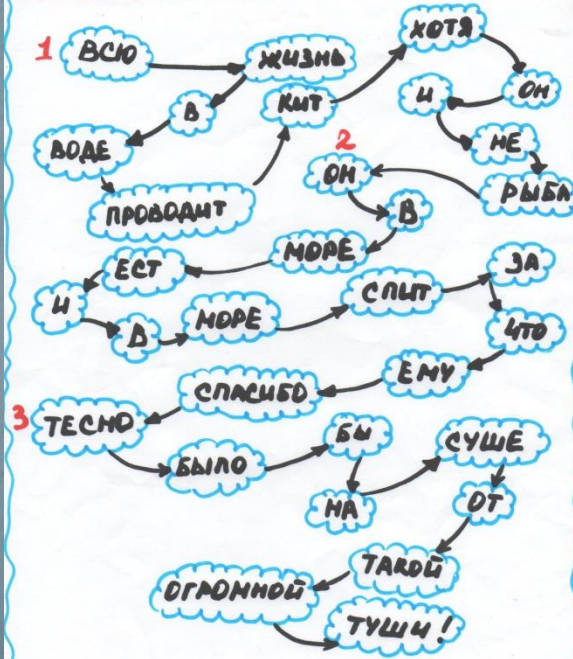 1 ВСЮ ЖИЗНЬ
В
ВОДЕ
ПРОВОДИТ
КИТ
ХОТЯ
ОН
И
НЕ
РЫБА
2 ОН
В
МОРЕ
ЕСТ
И
В
МОРЕ
СПИТ
ЗА
ЧТО
ЕМУ
СПАСИБО
3 ТЕСНО
БЫЛО
БЫ
НА
СУШЕ
ОТ
ТАКОЙ
ОГРОМНОЙ
ТУШИ!